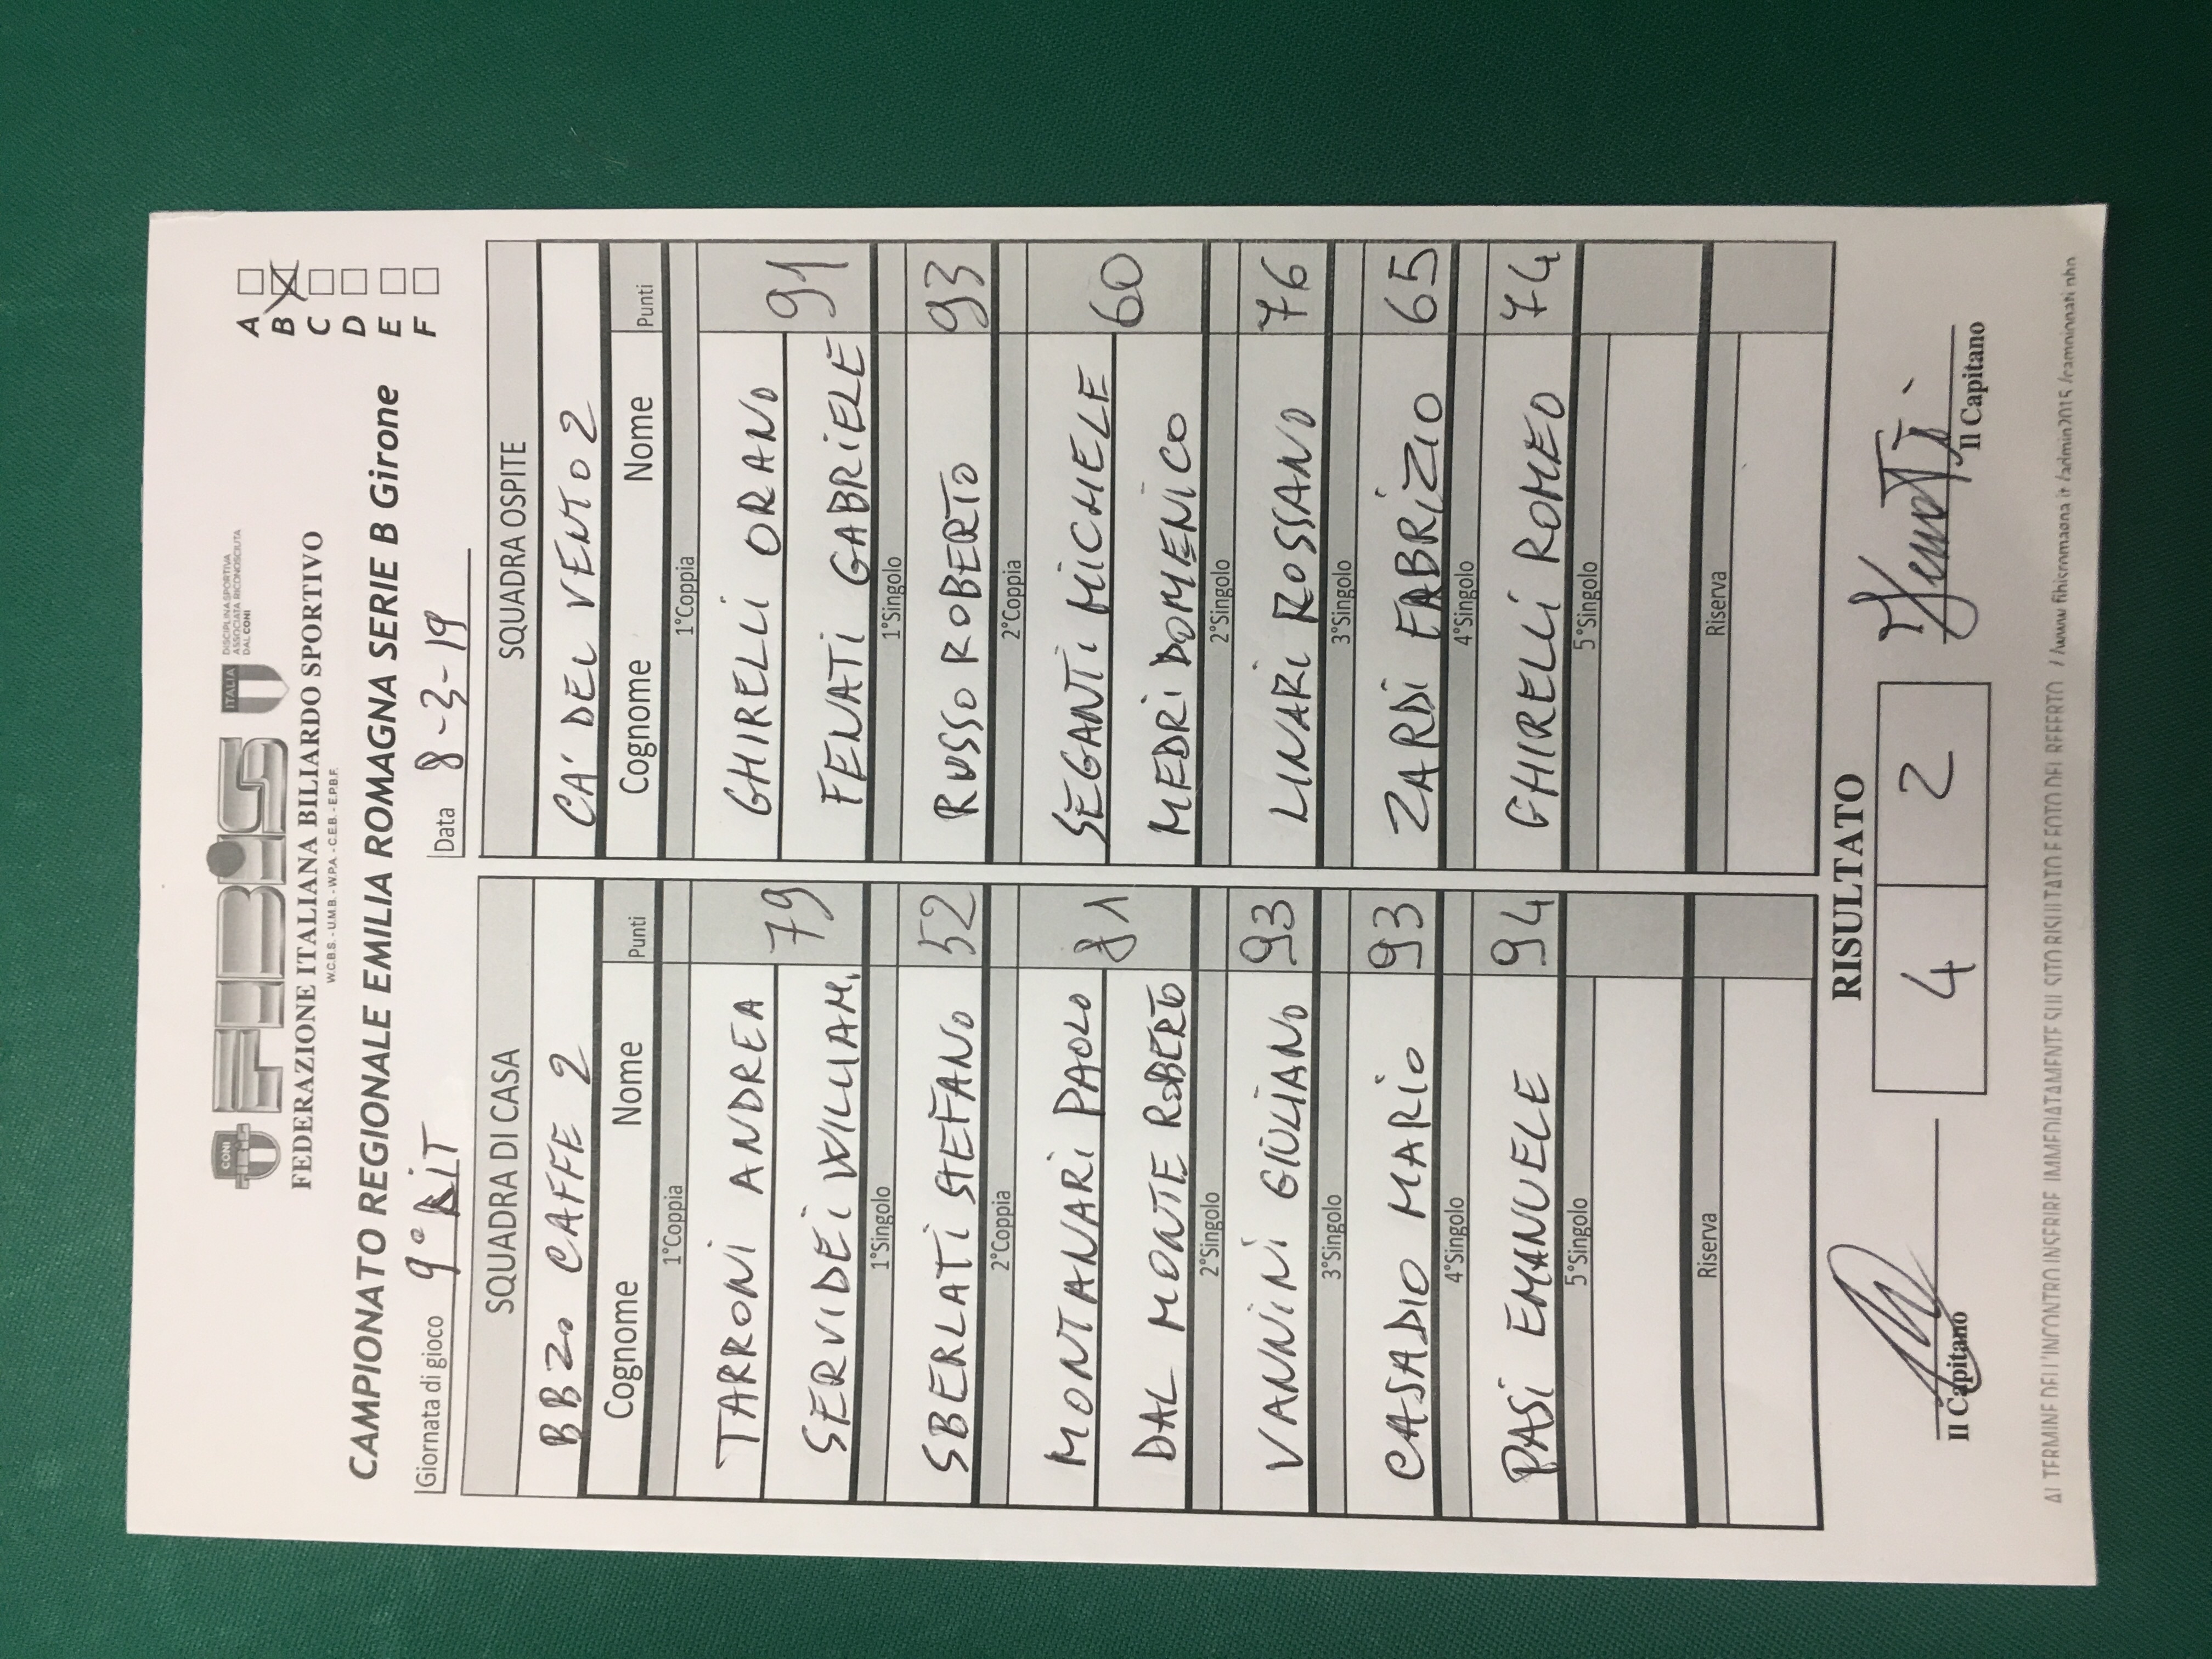 CONI
FIBIS
ITALIA
DISCIPLINA SPORTIVA
ASSOCIATA RICONOSCIUTA
DAL CONI
FEDERAZIONE ITALIANA BILIARDO SPORTIVO
W.C.B.S. - U.M.B. - W.P.A. - C.E.B. - E.P.B.F.
CAMPIONATO REGIONALE EMILIA ROMAGNA SERIE B Girone
A
B
C
D
E
F
Giornata di gioco 9° RIT
Data 8-3-19
SQUADRA DI CASA
BBZO CAFFE 2
Cognome Nome Punti
1°Coppia
TARRONI ANDREA
SERVIDEI WILLIAM 79
1°Singolo
SBERLATI STEFANO 52
2°Coppia
MONTANARI PAOLO
DAL MONTE ROBERTO 81
2°Singolo
VANNINI GIULIANO 93
3°Singolo
CASADIO MARIO 93
4°Singolo
PASI EMANUELE 94
5°Singolo
Riserva
SQUADRA OSPITE
CA' DEL VENTO 2
Cognome Nome Punti
1°Coppia
GHIRELLI ORANO
FENATI GABRIELE 91
1°Singolo
RUSSO ROBERTO 93
2°Coppia
SEGANTI MICHELE
MEDRI DOMENICO 60
2°Singolo
LINARI ROSSANO 76
3°Singolo
ZARDI FABRIZIO 65
4°Singolo
GHIRELLI ROMEO 74
5°Singolo
Riserva
RISULTATO
4 2
Il Capitano
Il Capitano
AL TERMINE DELL'INCONTRO INSERIRE IMMEDIATAMENTE SUL SITO RISULTATO E FOTO DEL REFERTO